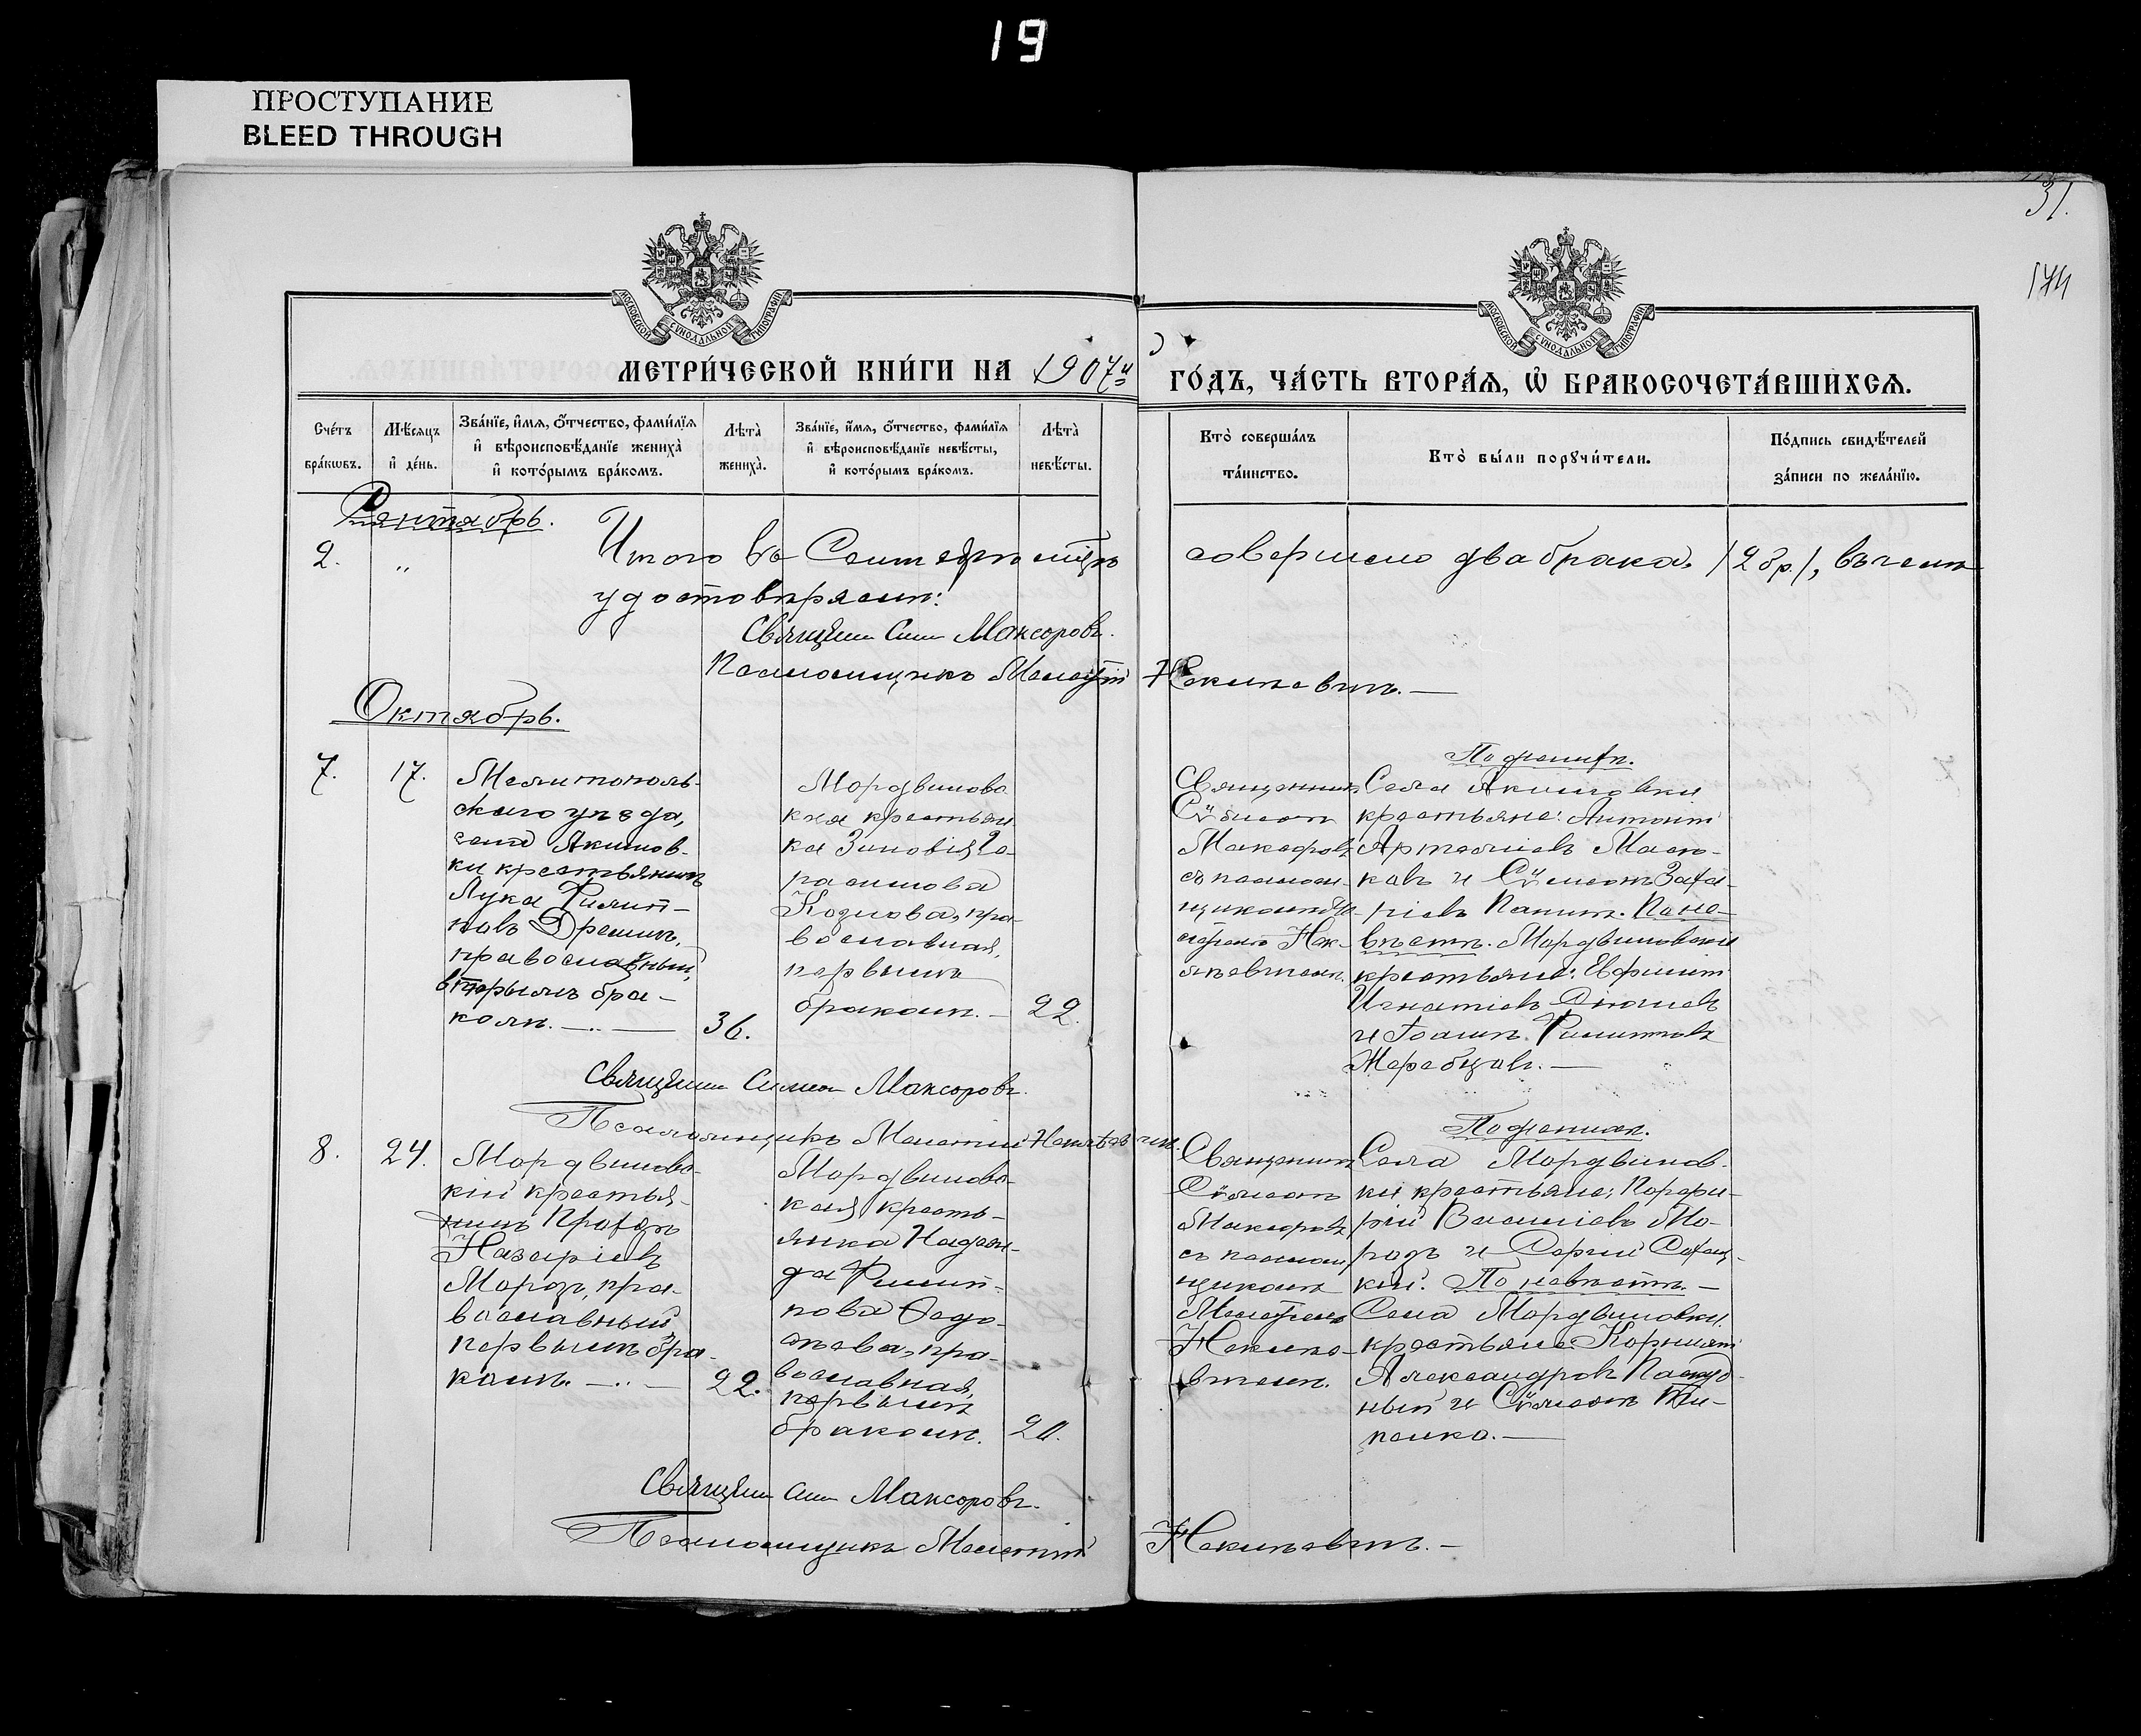 19
ПРОСТУПАНИЕ
BLEED THROUGH
31.
174
МОСКОВСКОЙ СѴНОДАЛЬНОЙ ТИПОГРАФІИ
МОСКОВСКОЙ СѴНОДАЛЬНОЙ ТИПОГРАФІИ
МЕТРИ́ЧЕСКОЙ КНИ́ГИ НА 1907й ГО́ДЪ, ЧА́СТЬ ВТОРА́Ѧ, Ѡ҆ БРАКОСОЧЕТА́ВШИХСѦ.
Сче́тъ бра́кѡвъ.
Мѣ́сяцъ и҆ де́нь.
Зва́нїе, и҆́мѧ, ѻ҆́тчество, фами́лїѧ
и҆ вѣроисповѣ́данїе жениха̀
и҆ кото́рымъ бра́комъ.
Лѣта̀ жениха̀.
Зва́нїе, и҆́мѧ, ѻ҆́тчество, фами́лїѧ
и҆ вѣроисповѣ́данїе невѣ́сты,
и҆ кото́рымъ бра́комъ.
Лѣта̀ невѣ́сты.
Кто̀ соверша́лъ
та́инство.
Кто̀ бы́ли порꙋчи́тели.
По́дпись свидѣ́телей
за́писи по жела́нїю.
Сентябрь.
2. „ Итого въ Сентябрѣ мцѣ совершено два брака. /2 бр./, въ чемъ
удостовѣряемъ:
Священ Сим Максоровъ.
Псаломщикъ Мелетій
Октябрь.
7.
17.
Мелитополь-
скаго уѣзда,
села Акимов-
ки крестьянинъ
Лука Филип-
повъ
православный,
вторымъ бра-
комъ.
36.
Мордвиновс
кая крестьян
ка Зиновія Ге-
расимова
Козлова, пра-
вославная,
первымъ
бракомъ.
22.
Священникъ
Сѵмеонъ
съ псалом-
щикомъ Ме-
По женихѣ.
Села Акимовки
крестьяне: Антоній
Артеміевъ
ковъ и Сѵмеонъ Заха-
ріевъ По не-
вѣстѣ. Мордвиновскіе
крестьяне: Евфимій
Игнатіевъ
и Іоаннъ Филипповъ
Жеребцовъ.
Священ Симеон Максоровъ.
Псаломщикъ Мелетій
8.
24.
Мордвиновс-
кій крестья-
нинъ
Назаріевъ
Морозъ, пра-
вославный,
первымъ бра-
комъ.
22.
Мордвиновс-
кая кресть-
янка Надеж-
да Филип-
пова
пра-
вославная,
первымъ
бракомъ.
Священникъ
Сѵмеонъ
съ псалом
щикомъ
Мелетіемъ
По женихѣ.
Села Мордвинов-
ки крестьяне: Порфи-
рій Василіевъ Мо-
розъ и Сергій
кій. По невѣстѣ.
Села Мордвиновки
крестьяне: Корнилій
Александровъ
ный и Сѵмеонъ
Священ Сим Максоровъ.
Псаломщикъ Мелетій